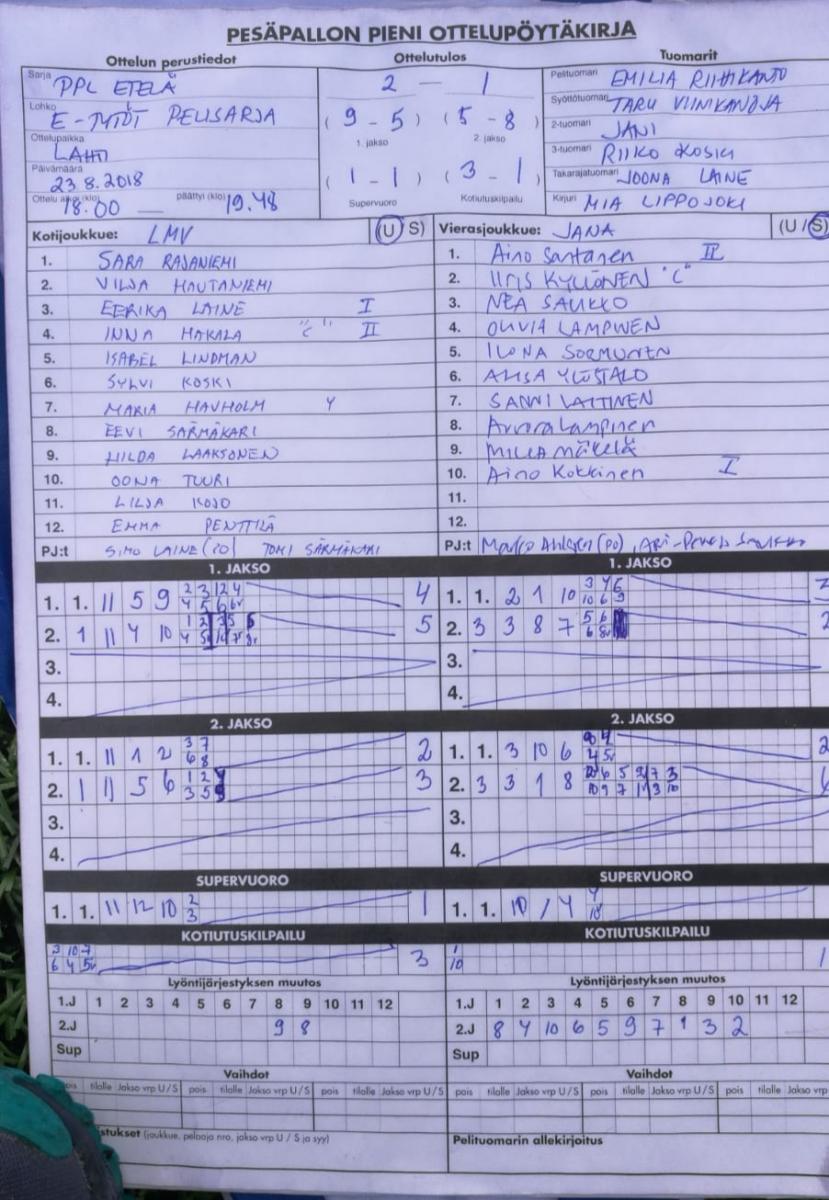 PESÄPALLON PIENI OTTELUPÖYTÄKIRJA
Ottelun perustiedot
Sarja PPL ETELÄ
Lohko E-TYTÖT PELISARJA
Ottelupaikka LAHTI
Päivämäärä 23.8.2018
Ottelu alkoi (klo) 18.00 — päättyi (klo) 19.48
Ottelutulos
2 — 1
(9-5) (5-8)
1. jakso 2. jakso
(1-1) (3-1)
Supervuoro Kotiutuskilpailu
Tuomarit
Pelituomari EMILIA RIIHIKANTO
Syöttötuomari TARU VIINIKANOJA
2-tuomari JANI
3-tuomari RIIKO KOSKI
Takarajatuomari JOONA LAINE
Kirjuri MIA LIPPOJOKI
Kotijoukkue: LMV (U/S)
1. SARA RAJANIEMI
2. VILJA HAUTANIEMI
3. EERIKA LAINE I
4. INNA MAKALA "C" II
5. ISABEL LINDMAN
6. SYLVI KOSKI
7. MARIA HAVHOLM Y
8. EEVI SÄRMÄKARI
9. HILDA LAAKSONEN
10. OONA TUURI
11. LILJA KOJO
12. EMMA PENTTILÄ
PJ:t SIMO LAINE (PO) TOMI SÄRMÄKARI
Vierasjoukkue: JANA (U/S)
1. Aino Santanen II
2. IIRIS KYLLÖNEN "C"
3. NEA SAUKKO
4. OLIVIA LAMPINEN
5. ILONA SORMUNEN
6. AHSA YLÖSTALO
7. SANNI LAITINEN
8. Aurora Lampinen
9. MILLA MÄKELÄ
10. Aino Kokkinen I
11.
12.
PJ:t
1. JAKSO
1. 1. 11 5 9 4
2. 1 11 4 10 5
3.
4.
1. JAKSO
1. 1. 2 1 10
2. 3 3 8 7
3.
4.
2. JAKSO
1. 1. 11 1 2 2
2. 1 11 5 6 3
3.
4.
2. JAKSO
1. 1. 3 10 6 2
2. 3 3 1 8
3.
4.
SUPERVUORO
1. 1. 11 12 10 2 3 1
SUPERVUORO
1. 1. 10 1 4
KOTIUTUSKILPAILU
3 10 7
6 4 5v 3
KOTIUTUSKILPAILU
1
10 1
Lyöntijärjestyksen muutos
1.J 1 2 3 4 5 6 7 8 9 10 11 12
2.J 9 8
Sup
Lyöntijärjestyksen muutos
1.J 1 2 3 4 5 6 7 8 9 10 11 12
2.J 8 4 10 6 5 9 7 1 3 2
Sup
Vaihdot
pois tilalle Jakso vrp U/S pois tilalle Jakso vrp U/S pois tilalle Jakso vrp U/S
Vaihdot
pois tilalle Jakso vrp U/S pois tilalle Jakso vrp U/S pois tilalle Jakso vrp
(joukkue, pelaaja nro, jakso vrp U / S ja syy)
Pelituomarin allekirjoitus